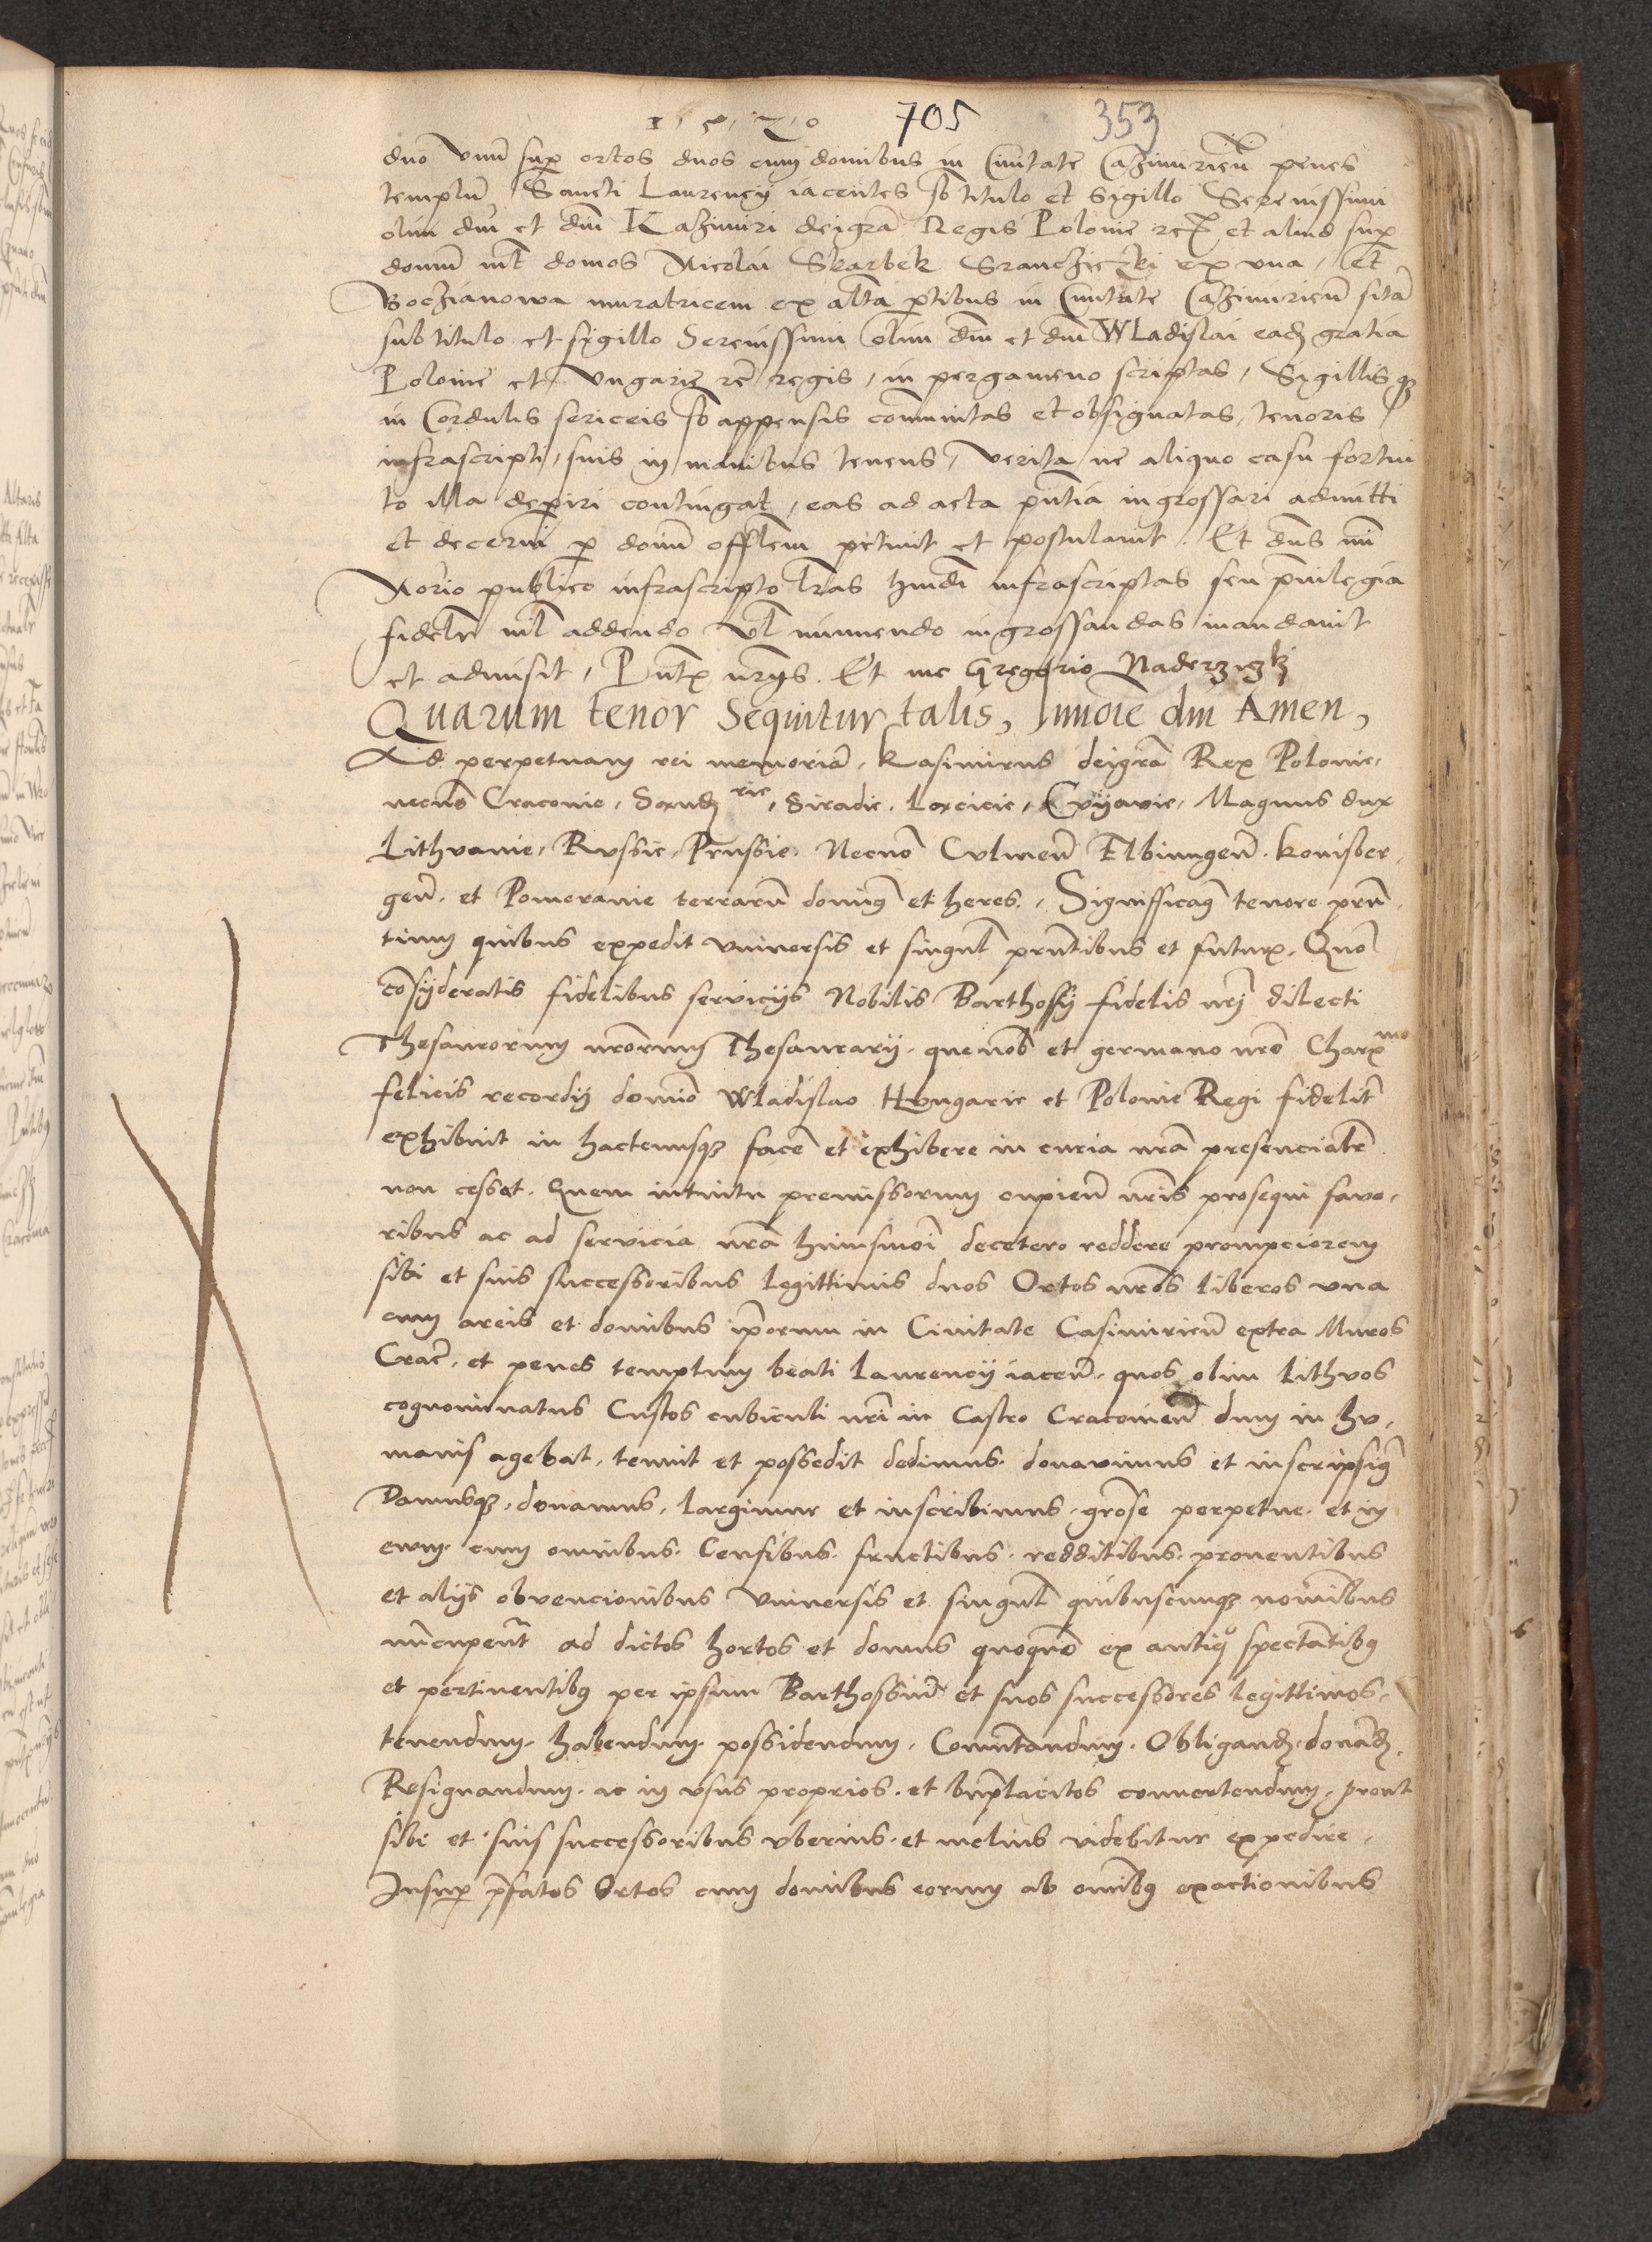 1520 705 353
duo vnu͂ sup͂ ortos duos cum domibus in Ciuitate Cazimirien͂ penes
templu͂ Sancti Laurencÿ iacentes sb titulo et Sigillo Serenissimi
olim dni et dni Kazimiri dei gra͂ Regis Polonie rc͂ et aliud sup͂
domu͂ int͂ domos Nicolai Skarbek ex vna, et
Boczianowa muratricem ex alt͂a p͂tibus in Ciuitate Cazimirien͂ sita͂
sub titulo et sigillo Serenissimi olim dni et dni Wladislai ead͂ gratia
Polonie et Vngarie rc͂ regis, in pergameno scriptas, Sigillisq3
in Cordulis sericeis sb appensis communitas et obsignatas, tenoris
infrascripti, suis in manibus tenens, verita ne aliquo casu fortui
to illa dep͂iri contingat, eas ad acta pn͂tia ingrossari admitti
et decerni p͂ domu͂ offlem petiuit et postulauit. Et dn͂s mi͂
Notrio publico infrascripto lr͂as hm͂di infrascriptas seu p͂uilegia
fidelr͂ nil addendo vl͂ minuendo ingrossandas mandauit
et admisit, Pn͂t͂ Et me Gregorio
Quarum tenor Sequitur talis, In no͂ie dni Amen,
Ad perpetuam rei memoria͂, Kasimirus dei gra͂ Rex Polonie,
necno͂ Craconie, Siradie, Lancicie, Cuÿavie, Magnus dux
Lithvanie, Rvssie, Prussie, Necno͂ Culmen͂ Elbinngen͂. konisber,
gen͂. et Pomeranie terraru͂ domin9 et heres. Significam9 tenore pn͂,
tium quibus expedit vniuersis et singul͂ pn͂tibus et futur͂. Quo͂
co͂sÿderatis fidelibus seruicÿs Nobilis Barthossÿ fidelis nr͂i dilecti
Thesaurorum nr͂orum Thesaurarÿ. que nob͂ et germano nr͂o Char͂mo
felicis recordÿ domio͂ Wladislao Hungarie et Polonie Regi fidelit͂
exhibuit in hactenusq3 face͂ et exhibere in curia nr͂a presencialr͂
non cessat. Quem intuitu premissorum cupien͂ nr͂is prosequi fauo,
ribus ac ad seruicia nr͂a huiusmo͂i decetero reddere prompciorem
sibi et suis successoribus legittimis duos Ortos nr͂os liberos vna
cum areis et domibus ip͂orum in Ciuitate Casimirien͂ extra Muros
Crac͂. et penes templum beati Laurencÿ iacen͂. quos olim Lithvos
cognominatus Custos cubiculi nr͂i in Castro Cracouien͂ dum in hu,
manis agebat, tenuit et possedit dedimus. donauimus et inscripsim9
Damusq3, donamus, largimur et inscribimus, gr͂ose perpetue. et in
evum. cum omnibus. Censibus. fructibus. redditibus. prouentibus
et alÿs obvencionibus vniuersis et singul͂ quibuscunq3 no͂ibus
nu͂cupent͂ ad dictos hortos et domus quoquo͂ ex antiquo specta͂tib9
et pertinentib9 per ipsum Barthossiu͂ et suos successores legittimos,
tenendum. habendum. possidendum, Co͂mutandum. Obligand͂. dona͂d͂.
Resignandum. ac in vsus proprios. et bn͂placitos conuertendum, prout
sibi et suis successoribus vberius. et melius videbitur expedire,
Insup͂ p͂fatos Ortos cum domibus eorum ab omnib9 exactionibus